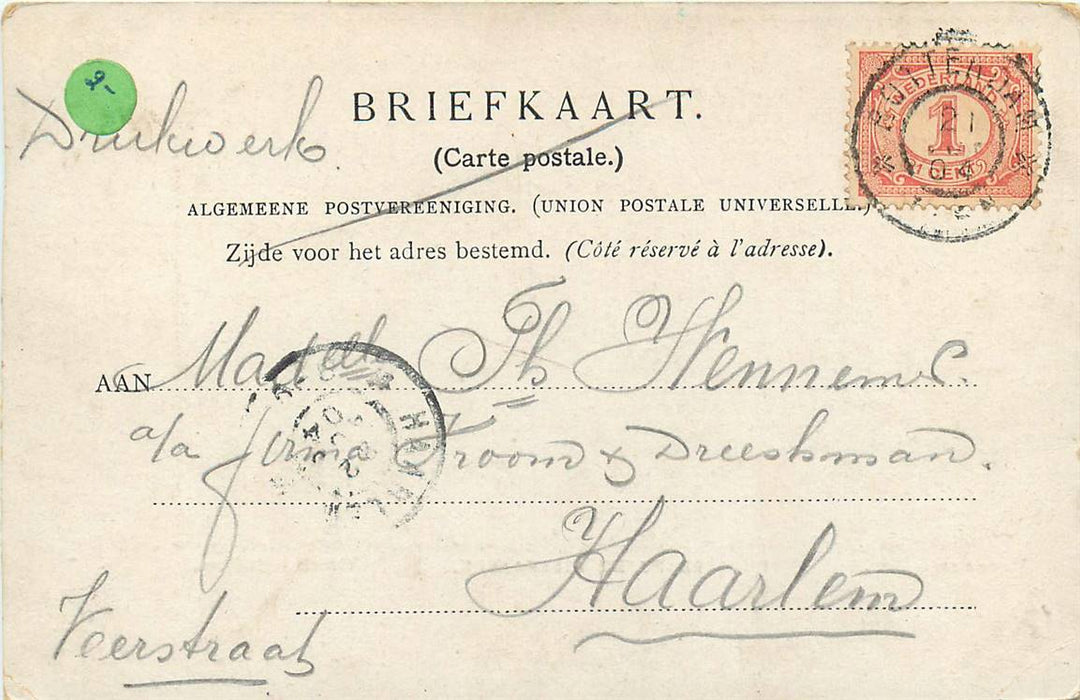 9,-
Drukwerk
BRIEFKAART.
(Carte postale.)
ALGEMEENE POSTVEREENIGING. (UNION POSTALE UNIVERSELLE.)
Zijde voor het adres bestemd. (Côté réservé à l'adresse).
NEDERLAND
1
1 CENT
21
04
AAN Madelle Th Hennem C.
a/a firma Froom & Dreeshman.
Haarlem
Veerstraat